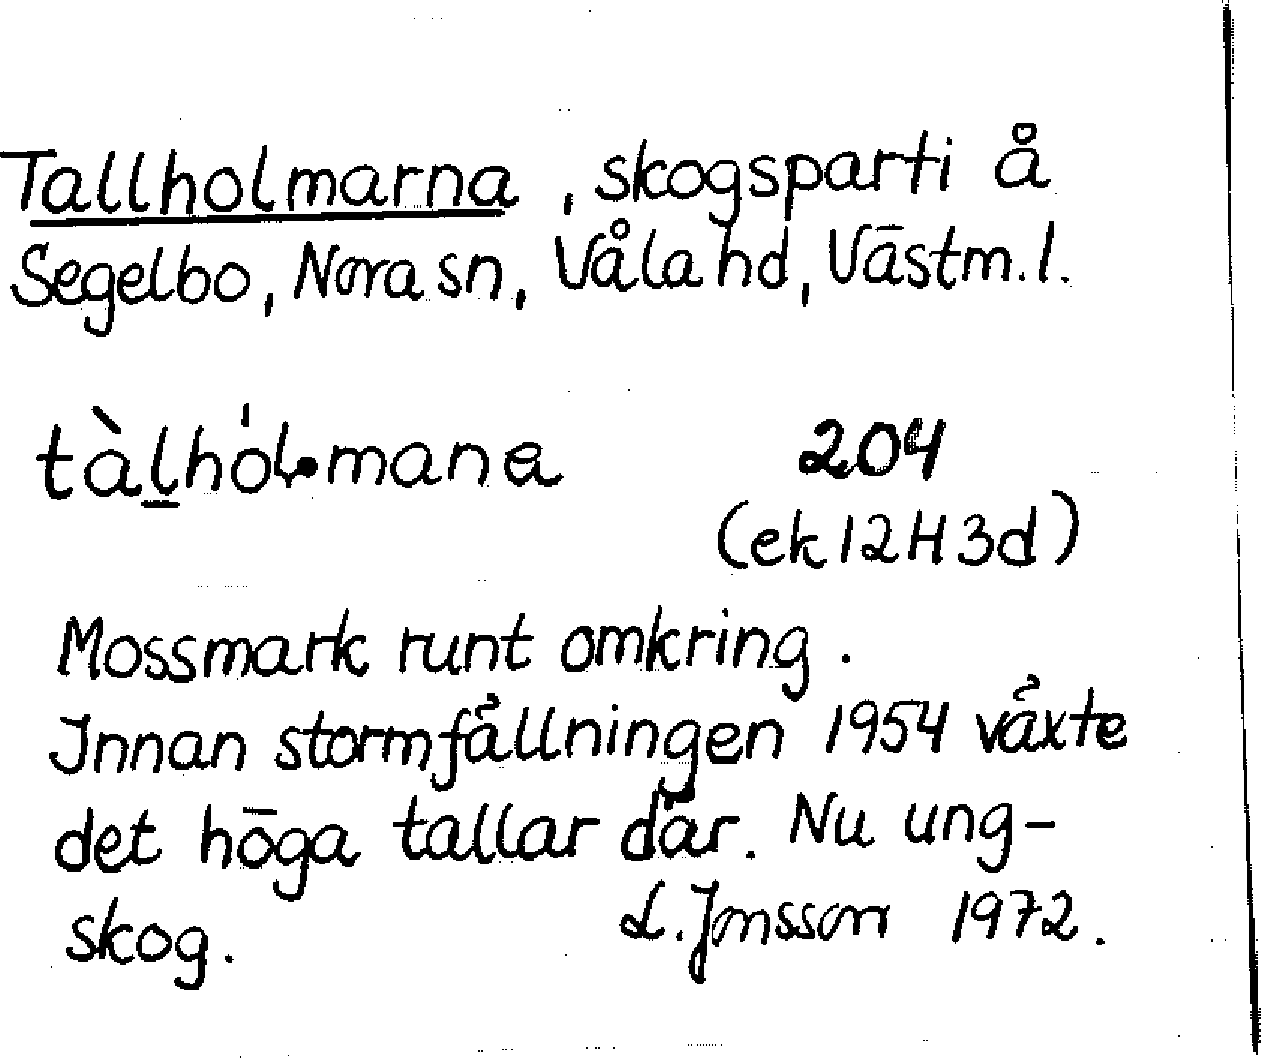 Tallholmarna, skogsparti å
Segelbo, Nora sn, Våla hd, Västm. l.
tàl̲hól•mana 204
(ek 12H3d)
Mossmark runt omkring.
Innan stormfällningen 1954 växte
det höga tallar där. Nu ung-
skog. L. Jonsson 1972.